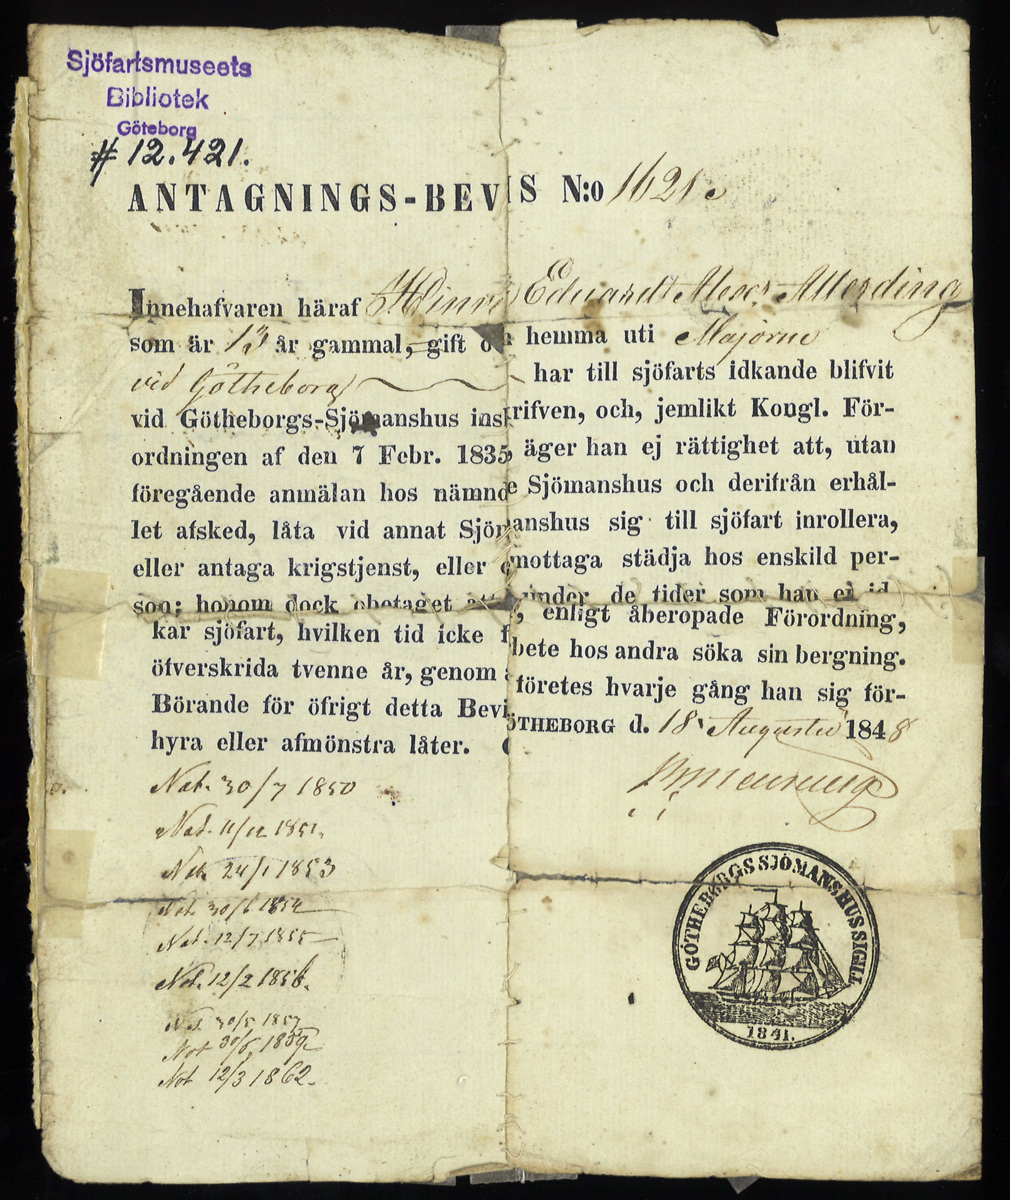 Sjöfartsmuseets
Bibliotek
Göteborg
# 12.421.
ANTAGNINGS-BEVIS N:o 1621.
Innehafvaren häraf Hinri Eduard Allerding
som är 13 år gammal, gift och hemma uti Majorne
vid Götheborg har till sjöfarts idkande blifvit
vid Götheborgs-Sjömanshus inskrifven, och, jemlikt Kongl. För-
ordningen af den 7 Febr. 1835, äger han ej rättighet att, utan
föregående anmälan hos nämnde Sjömanshus och derifrån erhål-
let afsked, låta vid annat Sjömanshus sig till sjöfart inrollera,
eller antaga krigstjenst, eller emottaga städja hos enskild per-
son; honom dock obetaget att under de tider som han ej id-
kar sjöfart, hvilken tid icke f, enligt åberopade Förordning,
öfverskrida tvenne år, genom arbete hos andra söka sin bergning.
Börande för öfrigt detta Bevis företes hvarje gång han sig för-
hyra eller afmönstra låter. GÖTHEBORG d. 18 Augusti 1848
Not. 30/7 1850
Not. 11/12 1851.
Not. 24/1 1853
Not. 30/6 1854
Not. 12/7 1855
Not. 12/2 1856.
Not. 30/5 1857
Not 30/6 1859
Not 12/3 1862.
GÖTHEBORGS SJÖMANSHUS SIGILL
1841.